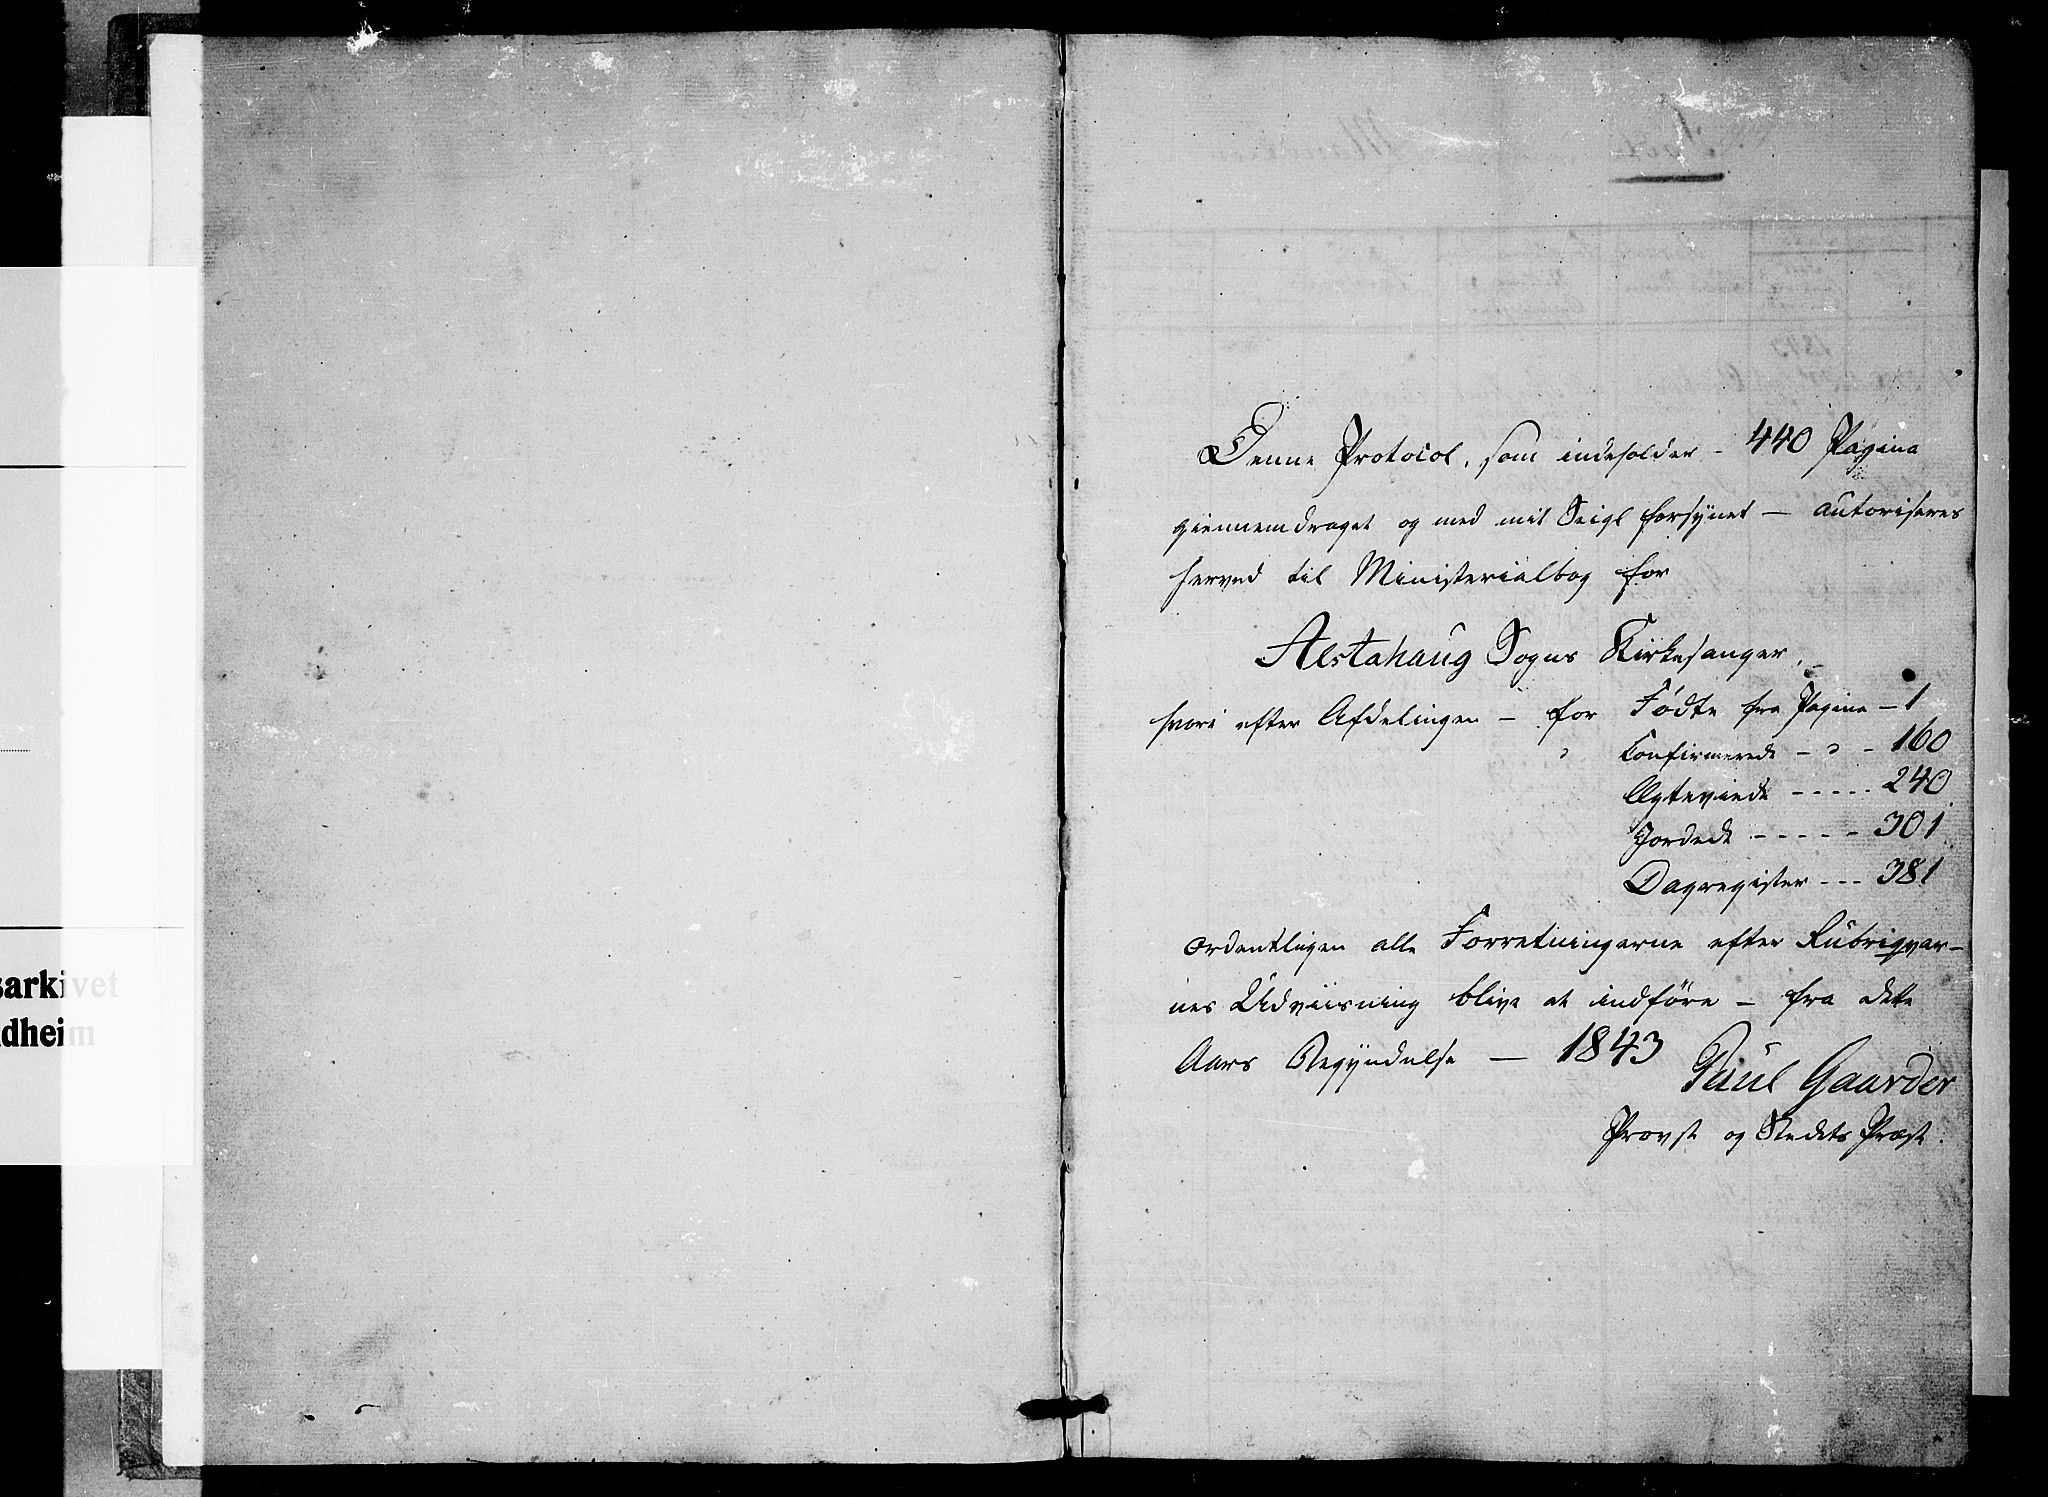 sarkivet
dheim
Denne Protocol, som indeholder - 440 Pagina
giennemdraget og med mit Seigl forsynet — autoriseres
herved til Ministerialbog for
Alstahaug Sogns Kirkesanger,
hvori efter Afdelingen — for Födte fra Pagina - 1
" Confirmerede - " - 160
Ægteviede - - - - - 240
Jordede - - - - - 301
Dagregister - - - 381
ordentligen alle Forretningerne efter Rubriqvar-
nes Udviisning blive at indföre — fra dette
Aars Begyndelse — 1843
Paul Gaarder
Provst og Stedets Præst.
1843